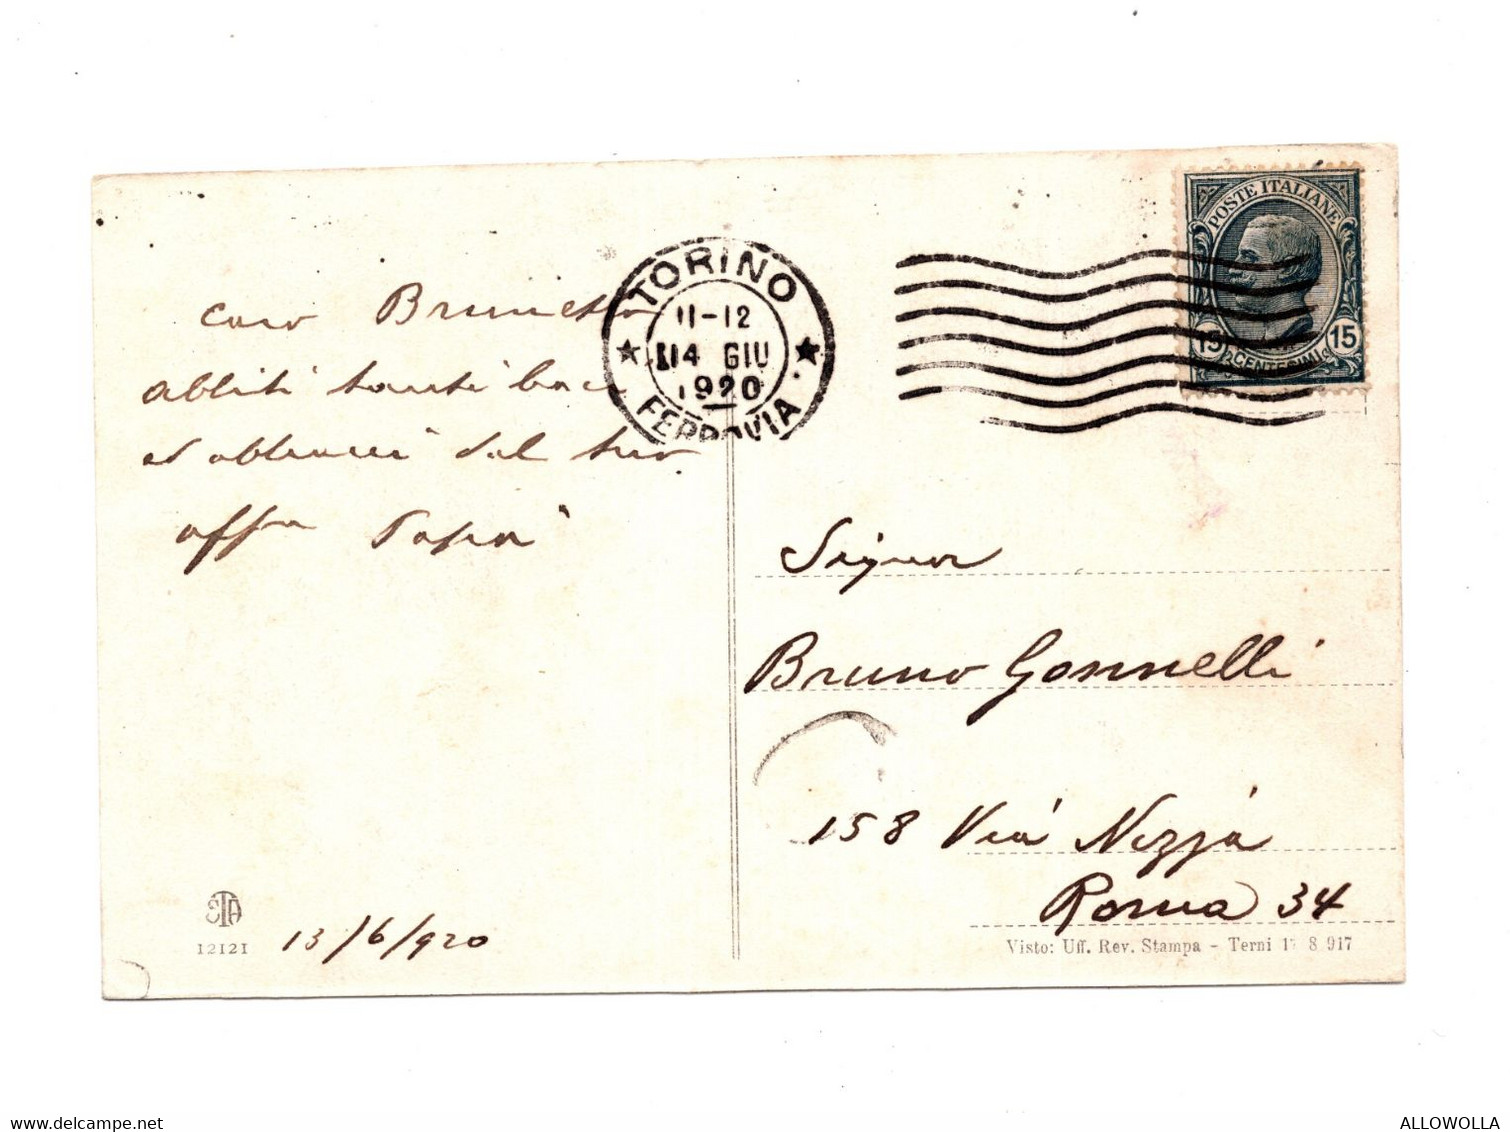 caro Brunetto
abbiti tanti baci
ed abbracci dal tuo
affo Papà
TORINO
11-12
14 GIU
1920
FERROVIA
POSTE ITALIANE
15 CENTESIMI 15
Signor
Bruno Gonnelli
158 Via Nizza
Roma 34
ETA
12121
13/6/920
Visto: Uff. Rev. Stampa - Terni 17 8 917
www.delcampe.net
ALLOWOLLA